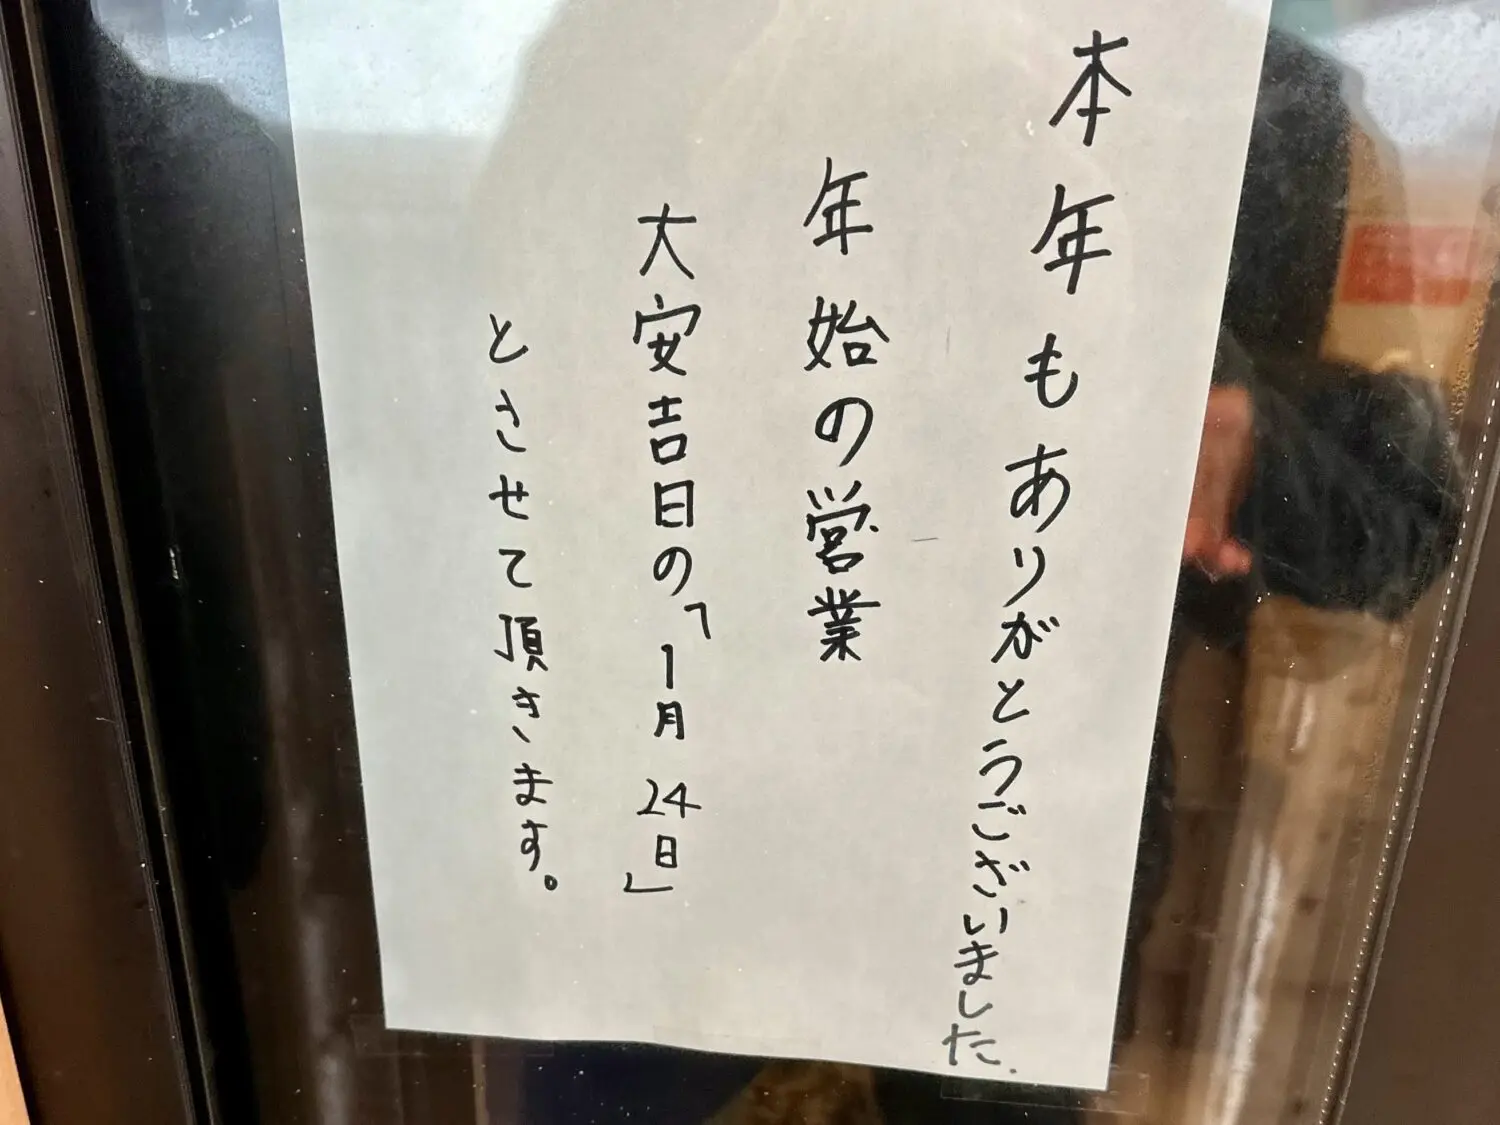 本年もありがとうございました.
年始の営業
大安吉日の「1月24日」
とさせて頂きます。